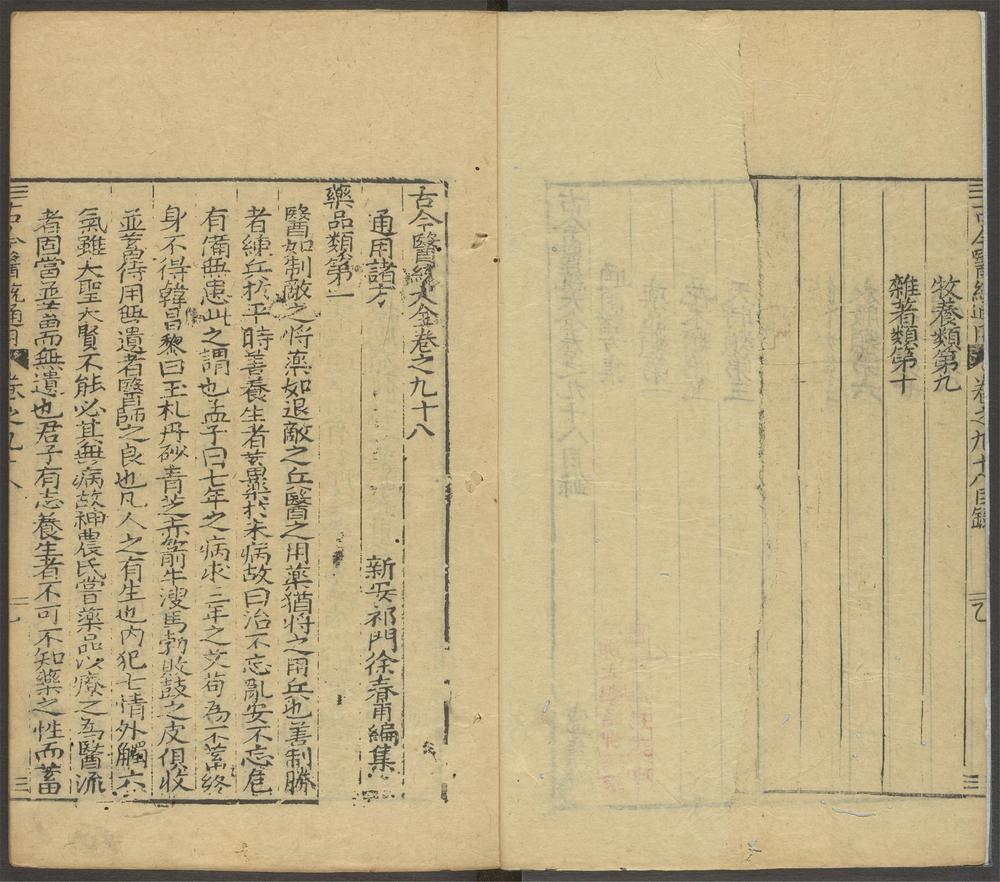 牧養類第九
雜著類第十
卷之九十八目錄
古今醫統大全卷之九十八
通用諸方
新安祁門徐春甫編集
藥品類第一
醫如制敵之將藥如退敵之兵醫之用藥猶將之用兵也善制勝
者練兵於平時善養生者蓄藥於未病故曰治不忘亂安不忘危
有備無患此之謂也孟子曰七年之病求三年之艾苟為不蓄終
身不得韓昌黎曰玉札丹砂青芝赤箭牛溲馬勃敗鼓之皮俱收
並蓄待用無遺者醫師之良也凡人之有生也內犯七情外觸六
氣雖大聖大賢不能必其無病故神農氏嘗藥品以療之為醫流
者固當並蓄而無遺也君子有志養生者不可不知藥之性而蓄